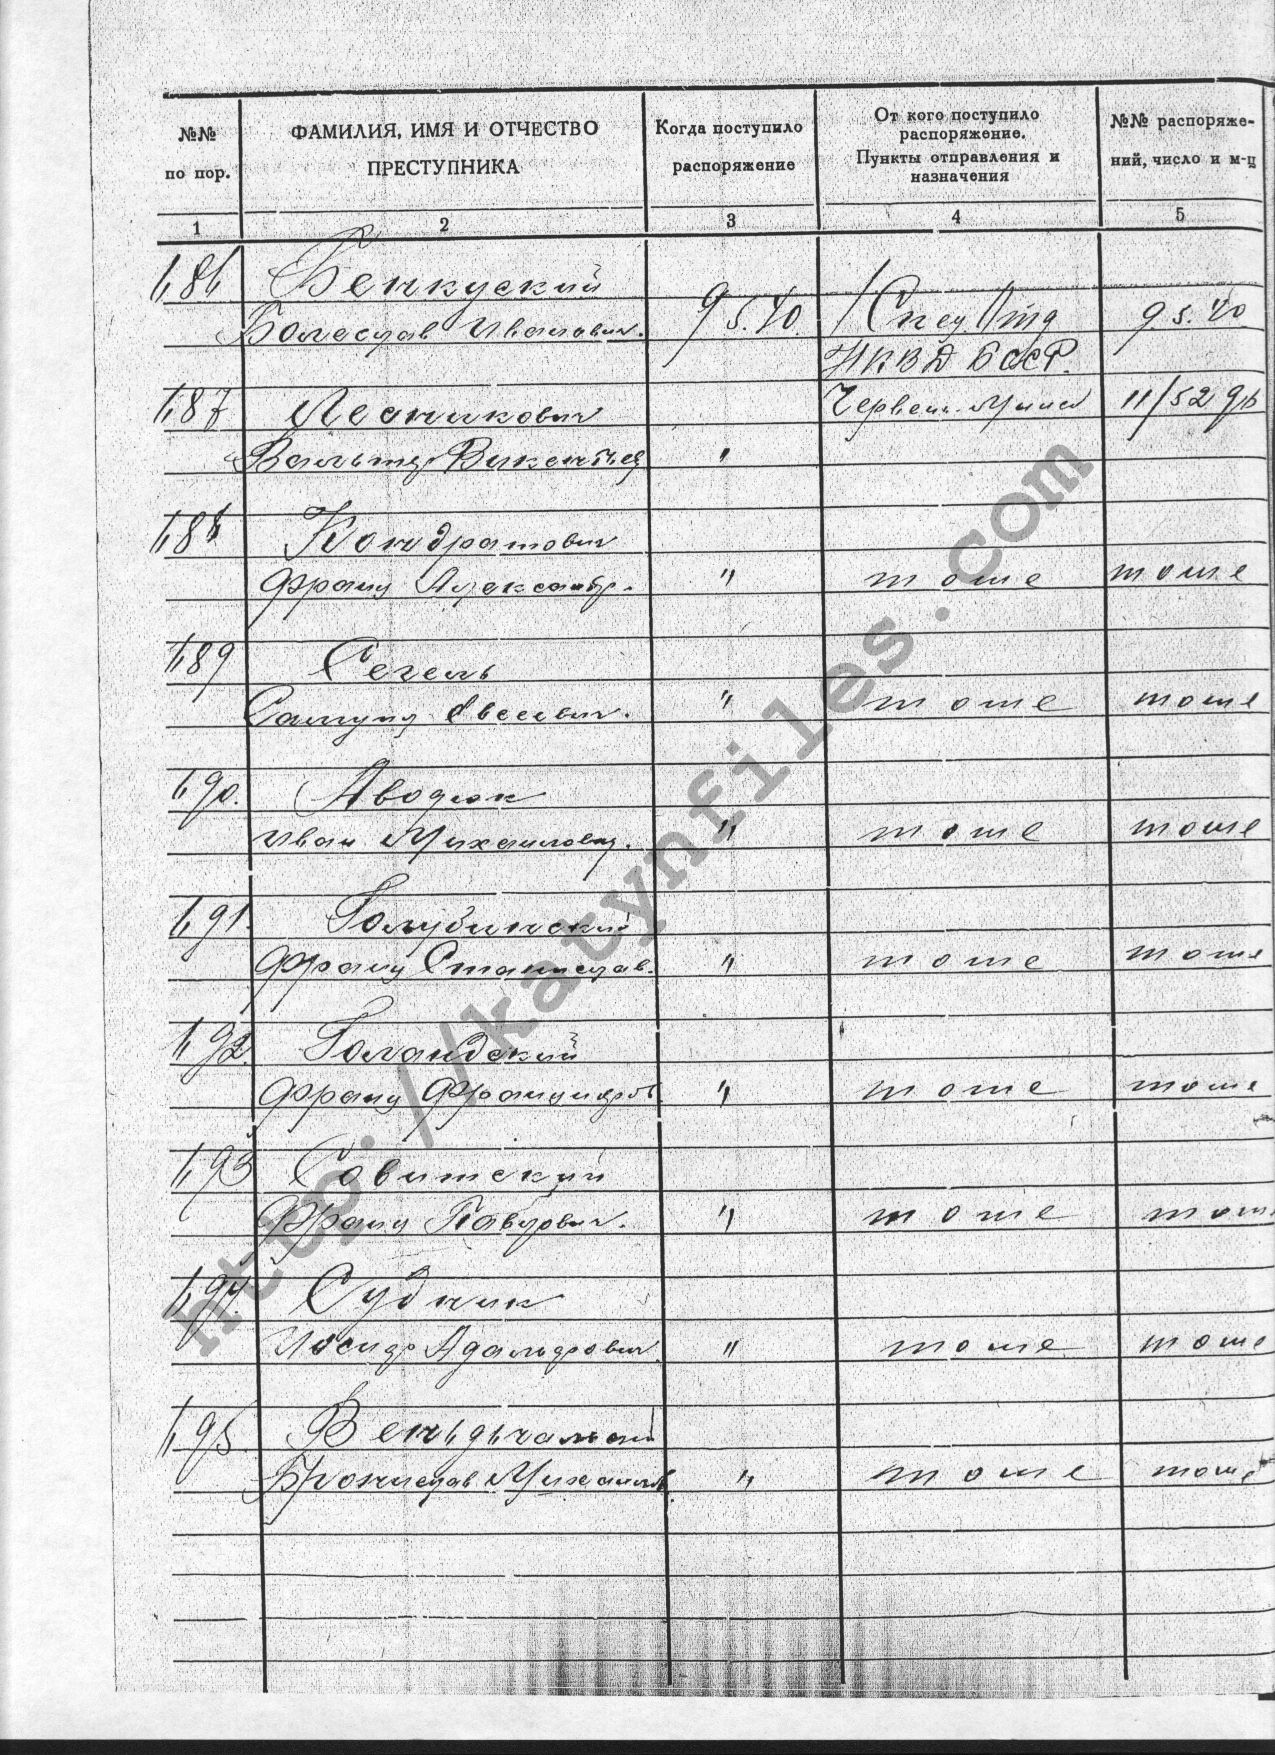 №№ по пор.
ФАМИЛИЯ, ИМЯ И ОТЧЕСТВО ПРЕСТУПНИКА
Когда поступило распоряжение
От кого поступило распоряжение. Пункты отправления и назначения
№№ распоряжений, число и м-ц
1 2 3 4 5
Бенкуский
Болеслав Иванович. 9.5.40. Спец 9.5.40
НКВД БССР.
187 Лесникович Червень-Минск 11/52
Вальтер Викентьев "
188 Кондратович
Франц Александр. " тоже тоже
189 Сегель
Самуил Евсеевич. " тоже тоже
190. Авдюк
Иван Михайлович. " тоже тоже
191. Голубинский
Франц Станислав. " тоже тоже
192. Голандский
Франц " тоже тоже
193 Савитский
Франц Павлович. " тоже тоже
194. Судник
Иосиф Адольфович. " тоже тоже
195.
Бронислав Михайлов. " тоже тоже
http://katynfiles.com